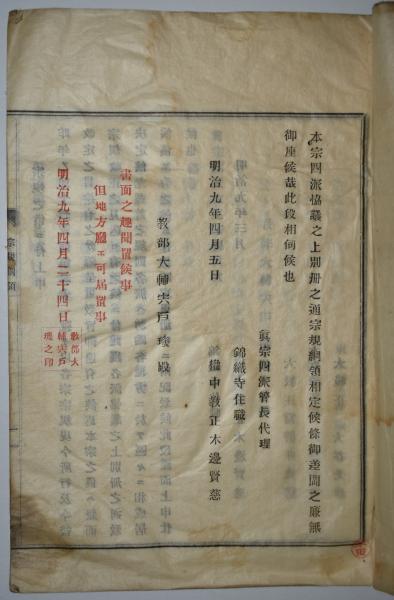 本宗四派協議之上別冊之通宗規綱領相定候條御差閊之廉無
御座候哉此段相伺候也
眞宗四派管長代理
錦織寺住職
明治九年四月五日
權中教正木邊賢慈
教部大輔宍戸璣殿
書面之趣聞置候事
但地方廳ヱ可届置事
明治九年四月二十四日
教部大
輔宍戸
璣之印